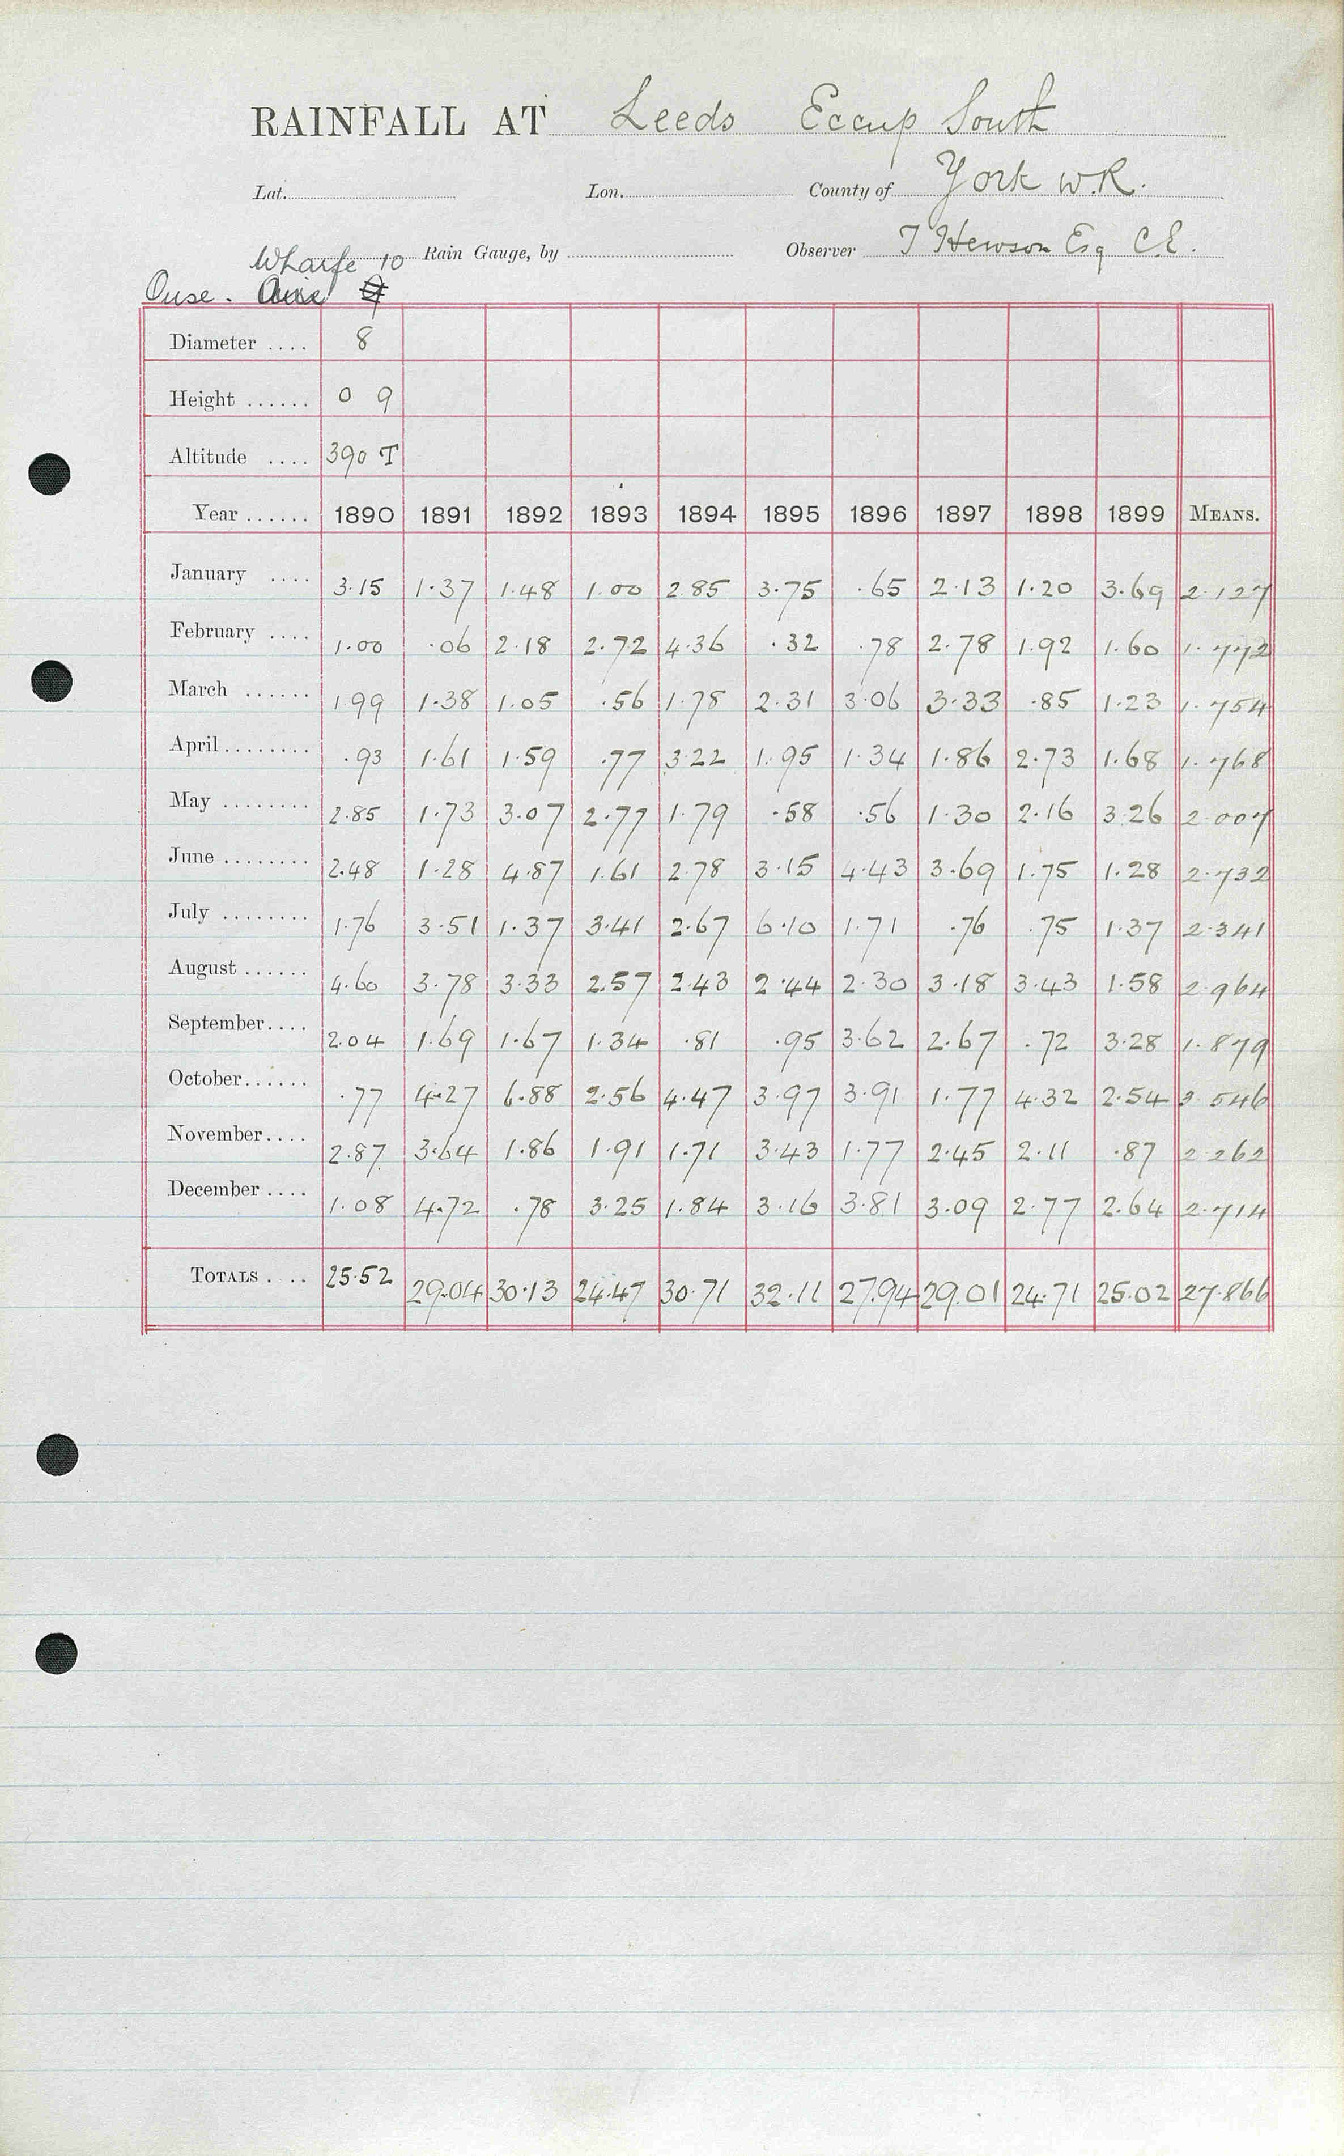 RAINFALL AT Leeds Eccup South
Lat. Lon. County of York W.R.
Wharfe 10 Rain Gauge, by Observer T Hewson Esq C.E.
Ouse. Aire
Diameter .... 8
Height ...... 0 9
Altitude .... 390 T
Year ...... 1890 1891 1892 1893 1894 1895 1896 1897 1898 1899 MEANS.
January .... 3.15 1.37 1.48 1.00 2.85 3.75 .65 2.13 1.20 3.69 2.127
February .... 1.00 .06 2.18 2.72 4.36 .32 .78 2.78 1.92 1.60 1.772
March ...... 1.99 1.38 1.05 .56 1.78 2.31 3.06 3.33 .85 1.23 1.754
April ........ .93 1.61 1.59 .77 3.22 1.95 1.34 1.86 2.73 1.68 1.768
May ........ 2.85 1.73 3.07 2.77 1.79 .58 .56 1.30 2.16 3.26 2.007
June ........ 2.48 1.28 4.87 1.61 2.78 3.15 4.43 3.69 1.75 1.28 2.732
July ........ 1.76 3.51 1.37 3.41 2.67 6.10 1.71 .76 .75 1.37 2.341
August ...... 4.60 3.78 3.33 2.57 2.43 2.44 2.30 3.18 3.43 1.58 2.964
September.... 2.04 1.69 1.67 1.34 .81 .95 3.62 2.67 .72 3.28 1.879
October...... .77 4.27 6.88 2.56 4.47 3.97 3.91 1.77 4.32 2.54 3.546
November.... 2.87 3.64 1.86 1.91 1.71 3.43 1.77 2.45 2.11 .87 2.262
December .... 1.08 4.72 .78 3.25 1.84 3.16 3.81 3.09 2.77 2.64 2.714
TOTALS .... 25.52 29.04 30.13 24.47 30.71 32.11 27.94 29.01 24.71 25.02 27.866